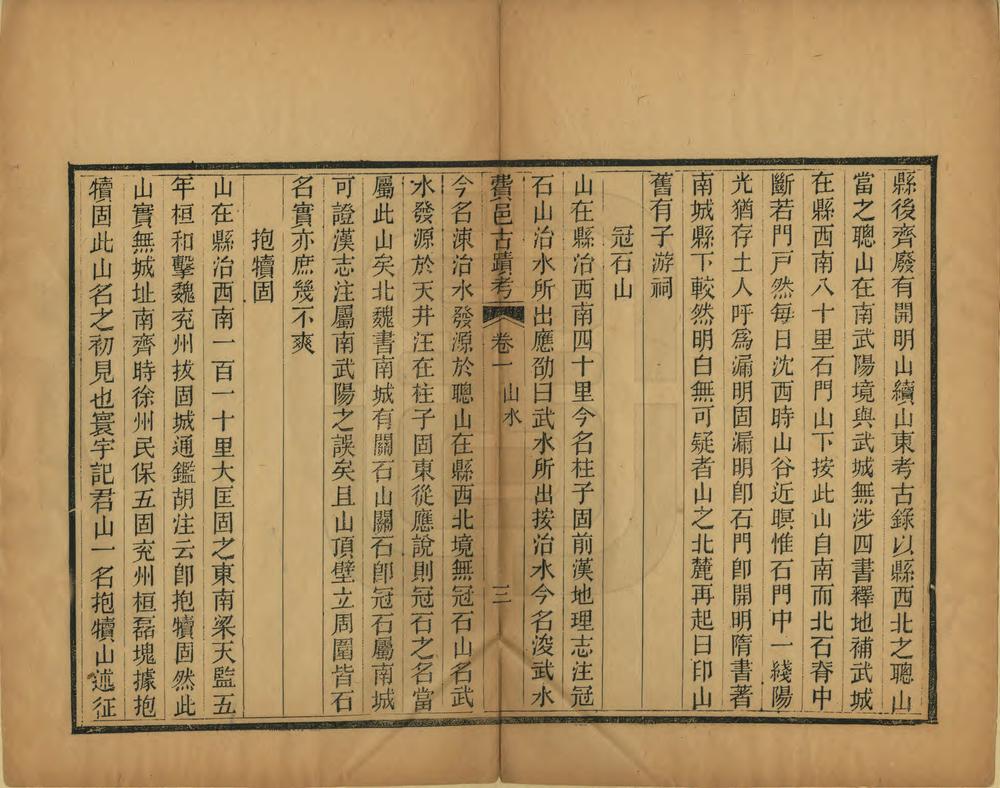 縣後齊廢有開明山續山東考古錄以縣西北之聰山
當之聰山在南武陽境與武城無涉四書釋地補武城
在縣西南八十里石門山下按此山自南而北石脊中
斷若門戸然每日沈西時山谷近暝惟石門中一綫陽
光猶存土人呼爲漏明固漏明卽石門卽開明隋書著
南城縣下較然明白無可疑者山之北麓再起曰印山
舊有子游祠
冠石山
山在縣治西南四十里今名柱子固前漢地理志注冠
石山治水所出應劭曰武水所出按治水今名浚武水
費邑古蹟考 卷一 山水 三
今名涑治水發源於聰山在縣西北境無冠石山名武
水發源於天井汪在柱子固東從應說則冠石之名當
屬此山矣北魏書南城有關石山關石卽冠石屬南城
可證漢志注屬南武陽之誤矣且山頂壁立周圍皆石
名實亦庶幾不爽
抱犢固
山在縣治西南一百一十里大匡固之東南梁天監五
年桓和擊魏兖州拔固城通鑑胡注云卽抱犢固然此
山實無城址南齊時徐州民保五固兖州桓磊塊據抱
犢固此山名之初見也寰宇記君山一名抱犢山述征